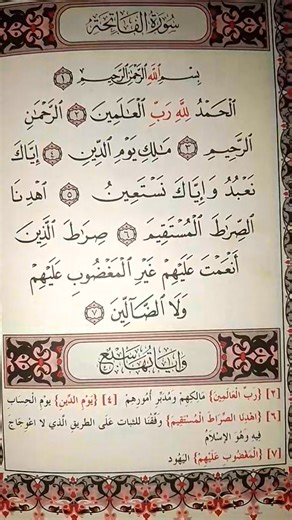 سُورَةُ الْفَاتِحَةِ
بِسْمِ اللَّهِ الرَّحْمَٰنِ الرَّحِيمِ ١
الْحَمْدُ لِلَّهِ رَبِّ الْعَالَمِينَ ٢ الرَّحْمَٰنِ
الرَّحِيمِ ٣ مَالِكِ يَوْمِ الدِّينِ ٤ إِيَّاكَ
نَعْبُدُ وَإِيَّاكَ نَسْتَعِينُ ٥ اهْدِنَا
الصِّرَاطَ الْمُسْتَقِيمَ ٦ صِرَاطَ الَّذِينَ
أَنْعَمْتَ عَلَيْهِمْ غَيْرِ الْمَغْضُوبِ عَلَيْهِمْ
وَلَا الضَّالِّينَ ٧
وَآيَاتُهَا سَبْعٌ
[٢] {رَبِّ الْعَالَمِينَ} مَالِكِهِمْ وَمُدَبِّرِ أُمُورِهِمْ [٤] {يَوْمِ الدِّينِ} يَوْمِ الْحِسَابِ
[٦] {اهْدِنَا الصِّرَاطَ الْمُسْتَقِيمَ} وَفِّقْنَا لِلثَّبَاتِ عَلَى الطَّرِيقِ الَّذِي لَا اعْوِجَاجَ
فِيهِ وَهُوَ الْإِسْلَامُ
[٧] {الْمَغْضُوبِ عَلَيْهِمْ} الْيَهُودِ